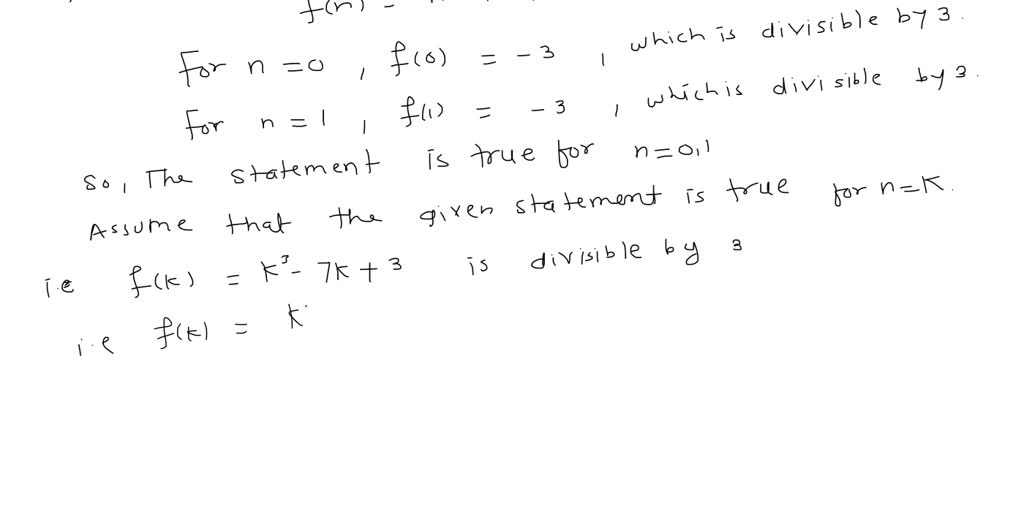 f(n) =
For n = 0 , f(0) = - 3 , which is divisible by 3.
For n = 1 , f(1) = - 3 , which is divisible by 3.
So, The statement is true for n=0,1
Assume that the given statement is true for n=K.
i.e f(K) = K³- 7K + 3 is divisible by 3
i.e f(K) = K